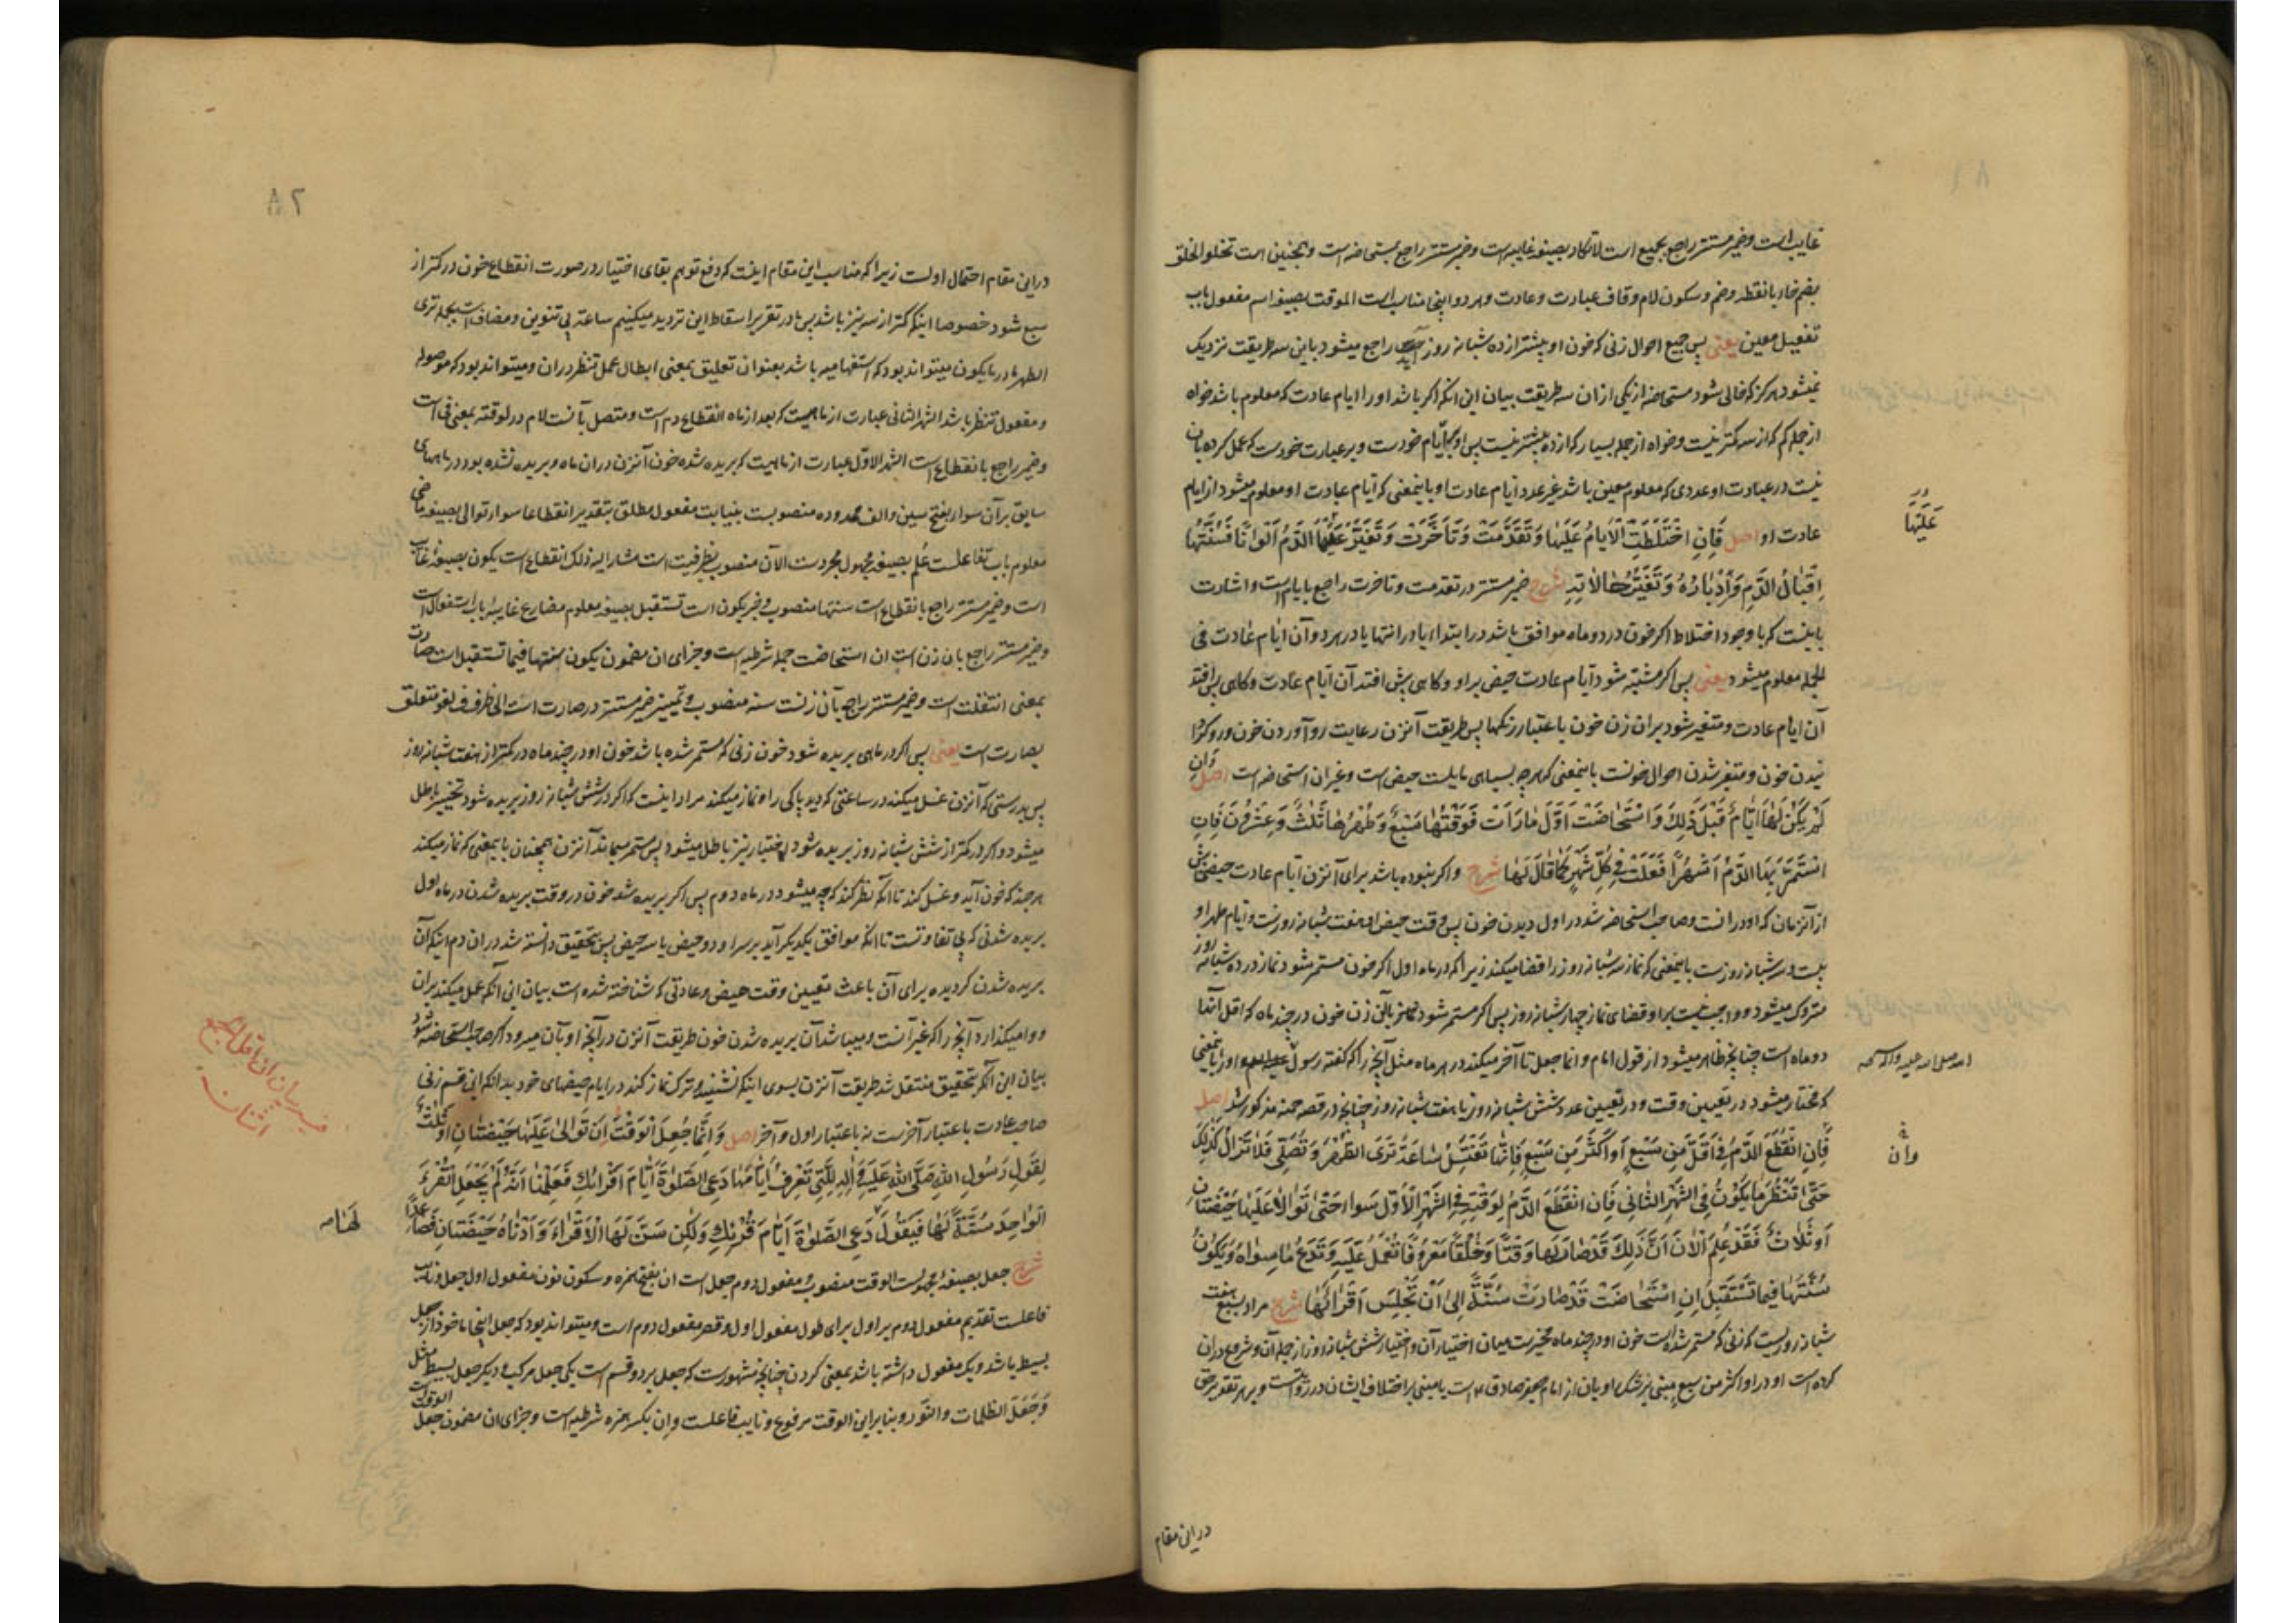 غایب است و ضمیر مستتر راجع بجمیع است لاتکاد بصیغهٔ غایبه است و ضمیر مستتر راجع بمستحاضه است و همچنین است تخلو الخلق
بضم خاء با نقطه و ضم و سکون لام و قاف عبارت و عادت و هر دو اینجا مناسب است الموقت بصیغهٔ اسم مفعول باب
تفعیل معین یعنی پس جمیع احوال زنی که خون او بیشتر از ده شبانه روز آید راجع میشود باین سه طریقت نزدیک
نمیشود هرگز که خالی شود مستحاضه از یکی ازان سه طریقت بیان این آنکه اگر باشد او را ایام عادت که معلوم باشد خواه
از جمله کم که از سه کمتر نیست و خواه از جمله بسیار که از ده بیشتر نیست پس او بر ایّام خودست و بر عبارت خودست که عمل کرده بآن
نیست در عبادت او عددی که معلوم معین باشد غیر عدد ایام عادت او باینمعنی که ایام عبادت او معلوم میشود از ایام
عادت او اصل فَإِنِ اخْتَلَطَتِ الْأَيَّامُ عَلَيْهَا وَتَقَدَّمَتْ وَتَأَخَّرَتْ وَتَغَيَّرَ عَلَيْهَا الدَّمُ أَلْوَانًا فَسُنَّتُهَا
إِقْبَالُ الدَّمِ وَإِدْبَارُهُ وَتَغَيُّرُ حَالَاتِهِ شرح ضمیر مستتر در تقدمت و تاخرت راجع بایام است و اشارت
باینست که با وجود اختلاط اگر خون در دو ماه موافق باشد در ابتداء یا در انتها یا در هر دو آن ایام عادت فی
الجمله معلوم میشود یعنی پس اگر مشتبه شود ایام عادت حیض بر او و گاهی پیش افتد آن ایام عادت و گاهی پس افتد
آن ایام عادت و متغیر شود بران زن خون باعتبار رنگها پس طریقت آنزن رعایت رو آوردن خون و رو گردا
نیدن خون و متغیر شدن احوال خونست باینمعنی که هرچه بسیاهی مایلست حیض است و غیر آن استحاضه است اصل وَإِن
لَمْ يَكُنْ لَهَا أَيَّامٌ قَبْلَ ذَلِكَ وَاسْتَحَاضَتْ أَوَّلَ مَا رَأَتْ فَوَقْتُهَا سَبْعٌ وَطُهْرُهَا ثَلٰثٌ وَعِشْرُونَ فَإِنِ
اسْتَمَرَّ بِهَا الدَّمُ أَشْهُرًا فَعَلَتْ فِي كُلِّ شَهْرٍ كَمَا قَالَ لَهَا شرح و اگر نبوده باشد برای آنزن ایام عادت حیض پیش
از آنزمان که او در آنست و صاحب استحاضه شد در اول دیدن خون پس وقت حیض او هفت شبانه روزست و ایام طهر او
بیست و سه شبانه روزست باینمعنی که نماز سه شبانه روز را قضا میکند زیرا که در ماه اول اگر خون مستمر شود نماز در ده شبانه روز
متروک میشود و واجب نیست بر او قضای نماز چهار شبانه روز پس اگر مستمر شود بآن زن خون در چند ماه که اقل آنها
دو ماه است چنانچه ظاهر میشود از قول امام و انما جعل تا آخر میکند در هر ماه مثل آنچه را که گفته رسول او را باینمعنی
که مختار میشود در تعیین وقت و در تعیین عدد شش شبانه روز یا هفت شبانه روز چنانچه در قصه حمنه مذکور شد اصل
فَإِنِ انْقَطَعَ الدَّمُ فِي أَقَلَّ مِنْ سَبْعٍ أَوْ أَكْثَرَ مِنْ سَبْعٍ فَإِنَّهَا تَغْتَسِلُ سَاعَةَ تَرَى الطُّهْرَ وَتُصَلِّي فَلَا تَزَالُ كَذَلِكَ
حَتَّى تَنْظُرَ مَا يَكُونُ فِي الشَّهْرِ الثَّانِي فَإِنِ انْقَطَعَ الدَّمُ لِوَقْتِهِ فِي الشَّهْرِ الْأَوَّلِ سَوَاءً حَتَّى تَوَالَى عَلَيْهَا حَيْضَتَانِ
أَوْ ثَلَاثٌ فَقَدْ عُلِمَ الْآنَ أَنَّ ذَلِكَ قَدْ صَارَ لَهَا وَقْتًا وَخُلُقًا مَعْرُوفًا تَعْمَلُ عَلَيْهِ وَتَدَعُ مَا سِوَاهُ وَيَكُونُ
سُنَّتُهَا فِيمَا تَسْتَقْبِلُ إِنِ اسْتَحَاضَتْ قَدْ صَارَتْ سُنَّةً إِلَى أَنْ تَجْلِسَ أَقْرَائَهَا شرح مراد بسبع هفت
شبانه روزیست که زنی که مستمر شده است خون او در چند ماه مخیرست میان اختیار آن و اختیار شش شبانه روز از جمله آن و شروع دران
کرده است او در او اکثر من سبع مبنی بر شک راویان از امام جعفر صادق ع است یا مبنی بر اختلاف ایشان در روایت و بر هر تقدیر حق
در این مقام
عَلَيْهَا
وان
٨٢
در این مقام احتمال اولست زیرا که مناسب این مقام اینست که دفع توهم بقای اختیار در صورت انقطاع خون در کمتر از
سبع شود خصوصا اینکه کمتر از سه نیز باشد پس ما در تقریر اسقاط این تردید میکنیم ساعة بی تنوین و مضاف است بجمله تری
الطهر ما در ما یکون میتواند بود که استفهامیه باشد بعنوان تعلیق بمعنی ابطال عمل تنظر دران و میتواند بود که موصوله
و مفعول تنظر باشد الشهر الثانی عبارت از ماهیست که بعد از ماه انقطاع دم است و متصل بآنست لام در لوقته بمعنی فی است
و ضمیر راجع بانقطاع است الشهر الاوّل عبارت از ماهیست که بریده شده خون آنزن دران ماه و بریده نشده بود در ماههای
سابق بر آن سواء بفتح سین و الف ممدوده منصوبست بنیابت مفعول مطلق بتقدیر انقطاعا سواء توالی بصیغهٔ ماضی
معلوم باب تفاعلست عُلم بصیغهٔ مجهول مجردست الآن منصوب بظرفیت است مشار الیه ذلک انقطاع است یکون بصیغهٔ غایب
است و ضمیر مستتر راجع بانقطاع است سنتها منصوب و خبر یکون است تستقبل بصیغهٔ معلوم مضارع غایبهٔ باب استفعال است
و ضمیر مستتر راجع بآن زن است ان استحاضت جمله شرطیه است و جزای آن مضمون یکون سنتها فیما تستقبل است صارت
بمعنی انتقلت است و ضمیر مستتر راجع بآن زنست سنة منصوب و تمییز ضمیر مستتر در صارت است الی ظرف لغو متعلق
بصارت است یعنی پس اگر در ماهی بریده شود خون زنی که مستمر شده باشد خون او در چند ماه در کمتر از هفت شبانه روز
پس بدرستی که آنزن غسل میکند در ساعتی که دید پاکی را و نماز میکند مراد اینست که اگر در شش شبانه روز بریده شود تخییر باطل
میشود و اگر در کمتر از شش شبانه روز بریده شود اختیار نیز باطل میشود پس مستمر میماند آنزن همچنان باینمعنی که نماز میکند
هرچند که خون آید و غسل کند تا آنکه نظر کند که چه میشود در ماه دوم پس اگر بریده شد خون در وقت بریده شدن در ماه اول
بریده شدنی که بی تفاوتست تا آنکه موافق یکدیگر آید بر سر او دو حیض یا سه حیض پس بتحقیق دانسته شد دران دم اینکه آن
بریده شدن گردیده برای آن باعث تعیین وقت حیض و عادتی که شناخته شده است بیان این آنکه عمل میکند بران
و وا میگذارد آنچه را که غیر آنست و میباشد آن بریده شدن خون طریقت آنزن در آنچه او بآن میرود اگر صاحب استحاضه شود
بیان این آنکه بتحقیق منتقل شد طریقت آنزن بسوی اینکه نشیند و ترک نماز کند در ایام حیضهای خود بدانکه این قسم زنی
صاحب عادت باعتبار آخرست نه باعتبار اول و آخر اصل وَإِنَّمَا جُعِلَ الْوَقْتُ إِنْ تَوَالَى عَلَيْهَا حَيْضَتَانِ أَوْ ثَلٰثٌ
لِقَوْلِ رَسُولِ اللهِ صَلَّى اللهُ عَلَيْهِ وَآلِهِ لِلَّتِي تَعْرِفُ أَيَّامَهَا دَعِي الصَّلَوٰةَ أَيَّامَ أَقْرَائِكِ فَعَلِمْنَا أَنَّهُ لَمْ يَجْعَلِ الْقُرْءَ
الْوَاحِدَ سُنَّةً لَهَا فَيَقُولَ دَعِي الصَّلٰوةَ أَيَّامَ قُرْئِكِ وَلٰكِنْ سَنَّ لَهَا الْأَقْرَاءَ وَأَدْنَاهُ حَيْضَتَانِ فَصَاعِدًا
شرح جعل بصیغهٔ مجهولست الوقت منصوب و مفعول دوم جعل است ان بفتح همزه و سکون نون مفعول اول جعل و نایب
فاعلست تقدیم مفعول دوم بر اول برای طول مفعول اول و قصر مفعول دوم است و میتواند بود که جعل اینجا ماخوذ از جعل
بسیط باشد و یک مفعول داشته باشد بمعنی کردن چنانچه مشهورست که جعل بر دو قسم است یکی جعل مرکب و دیگر جعل بسیط مثل
وَجَعَلَ الظلمات والنّور و بنا بر این الوقت مرفوع و نایب فاعلست و ان بکسر همزه شرطیه است و جزای آن مضمون جعل الوقت است
لَهَا